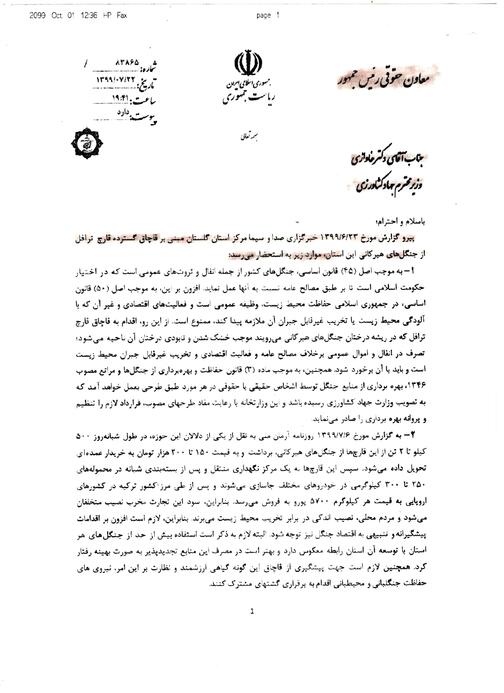 2099 Oct 01 12:36 HP Fax page 1
معاون حقوقی رئیس جمهور
جمهوری اسلامی ایران
ریاست جمهوری
شماره: ۸۳۸۶۵ /
تاریخ: ۱۳۹۹/۰۷/۲۲
ساعت: ۱۹:۴۱
پیوست: دارد
بسمه تعالی
جناب آقای دکتر خاوازی
وزیر محترم جهاد کشاورزی
باسلام و احترام؛
پیرو گزارش مورخ ۱۳۹۹/۶/۲۳ خبرگزاری صدا و سیما مرکز استان گلستان مبنی بر قاچاق گسترده قارچ ترافل از
جنگل‌های هیرکانی این استان، موارد زیر به استحضار می‌رسد:
۱- به موجب اصل (۴۵) قانون اساسی، جنگل‌های کشور از جمله انفال و ثروت‌های عمومی است که در اختیار
حکومت اسلامی است تا بر طبق مصالح عامه نسبت به آنها عمل نماید. افزون بر این، به موجب اصل (۵۰) قانون
اساسی، در جمهوری اسلامی حفاظت محیط زیست، وظیفه عمومی است و فعالیت‌های اقتصادی و غیر آن که با
آلودگی محیط زیست یا تخریب غیرقابل جبران آن ملازمه پیدا کند، ممنوع است. از این رو، اقدام به قاچاق قارچ
ترافل که در ریشه درختان جنگل‌های هیرکانی می‌رویند موجب خشک شدن و نابودی درختان آن ناحیه می‌شود؛
تصرف در انفال و اموال عمومی برخلاف مصالح عامه و فعالیت اقتصادی و تخریب غیرقابل جبران محیط زیست
است و باید با آن برخورد شود. همچنین، به موجب ماده (۳) قانون حفاظت و بهره‌برداری از جنگل‌ها و مراتع مصوب
۱۳۴۶، بهره برداری از منابع جنگل توسط اشخاص حقیقی یا حقوقی در هر مورد طبق طرحی بعمل خواهد آمد که
به تصویب وزارت جهاد کشاورزی رسیده باشد و این وزارتخانه با رعایت مفاد طرحهای مصوب، قرارداد لازم را تنظیم
و پروانه بهره برداری را صادر می‌نماید.
۲- به گزارش مورخ ۱۳۹۹/۷/۶ روزنامه آرمان ملی به نقل از یکی از دلالان این حوزه، در طول شبانه‌روز ۵۰۰
کیلو تا ۲ تن از این قارچ‌ها از جنگل‌های هیرکانی، برداشت و به قیمت ۱۵۰ تا ۲۰۰ هزار تومان به خریدار عمده‌ای
تحویل داده می‌شود. سپس این قارچ‌ها به یک مرکز نگهداری منتقل و پس از بسته‌بندی شبانه در محموله‌های
۲۵۰ تا ۳۰۰ کیلوگرمی در خودروهای مختلف جاسازی می‌شوند و پس از طی مرز کشور ترکیه در کشورهای
اروپایی به قیمت هر کیلوگرم ۵۷۰۰ یورو به فروش می‌رسد. بنابراین، سود این تجارت مخرب نصیب متخلفان
می‌شود و مردم محلی، نصیب اندکی در برابر تخریب محیط زیست می‌برند. بنابراین، لازم است افزون بر اقدامات
پیشگیرانه و تنبیهی به اقتصاد جنگل نیز توجه شود. البته لازم به ذکر است استفاده بیش از حد از جنگل‌های هر
استان با توسعه آن استان رابطه معکوس دارد و بهتر است در مصرف این منابع تجدیدپذیر به صورت بهینه رفتار
کرد. همچنین لازم است جهت پیشگیری از قاچاق این گونه گیاهی ارزشمند و نظارت بر این امر، نیروی های
حفاظت جنگلبانی و محیطبانی اقدام به برقراری گشتهای مشترک کنند.
1